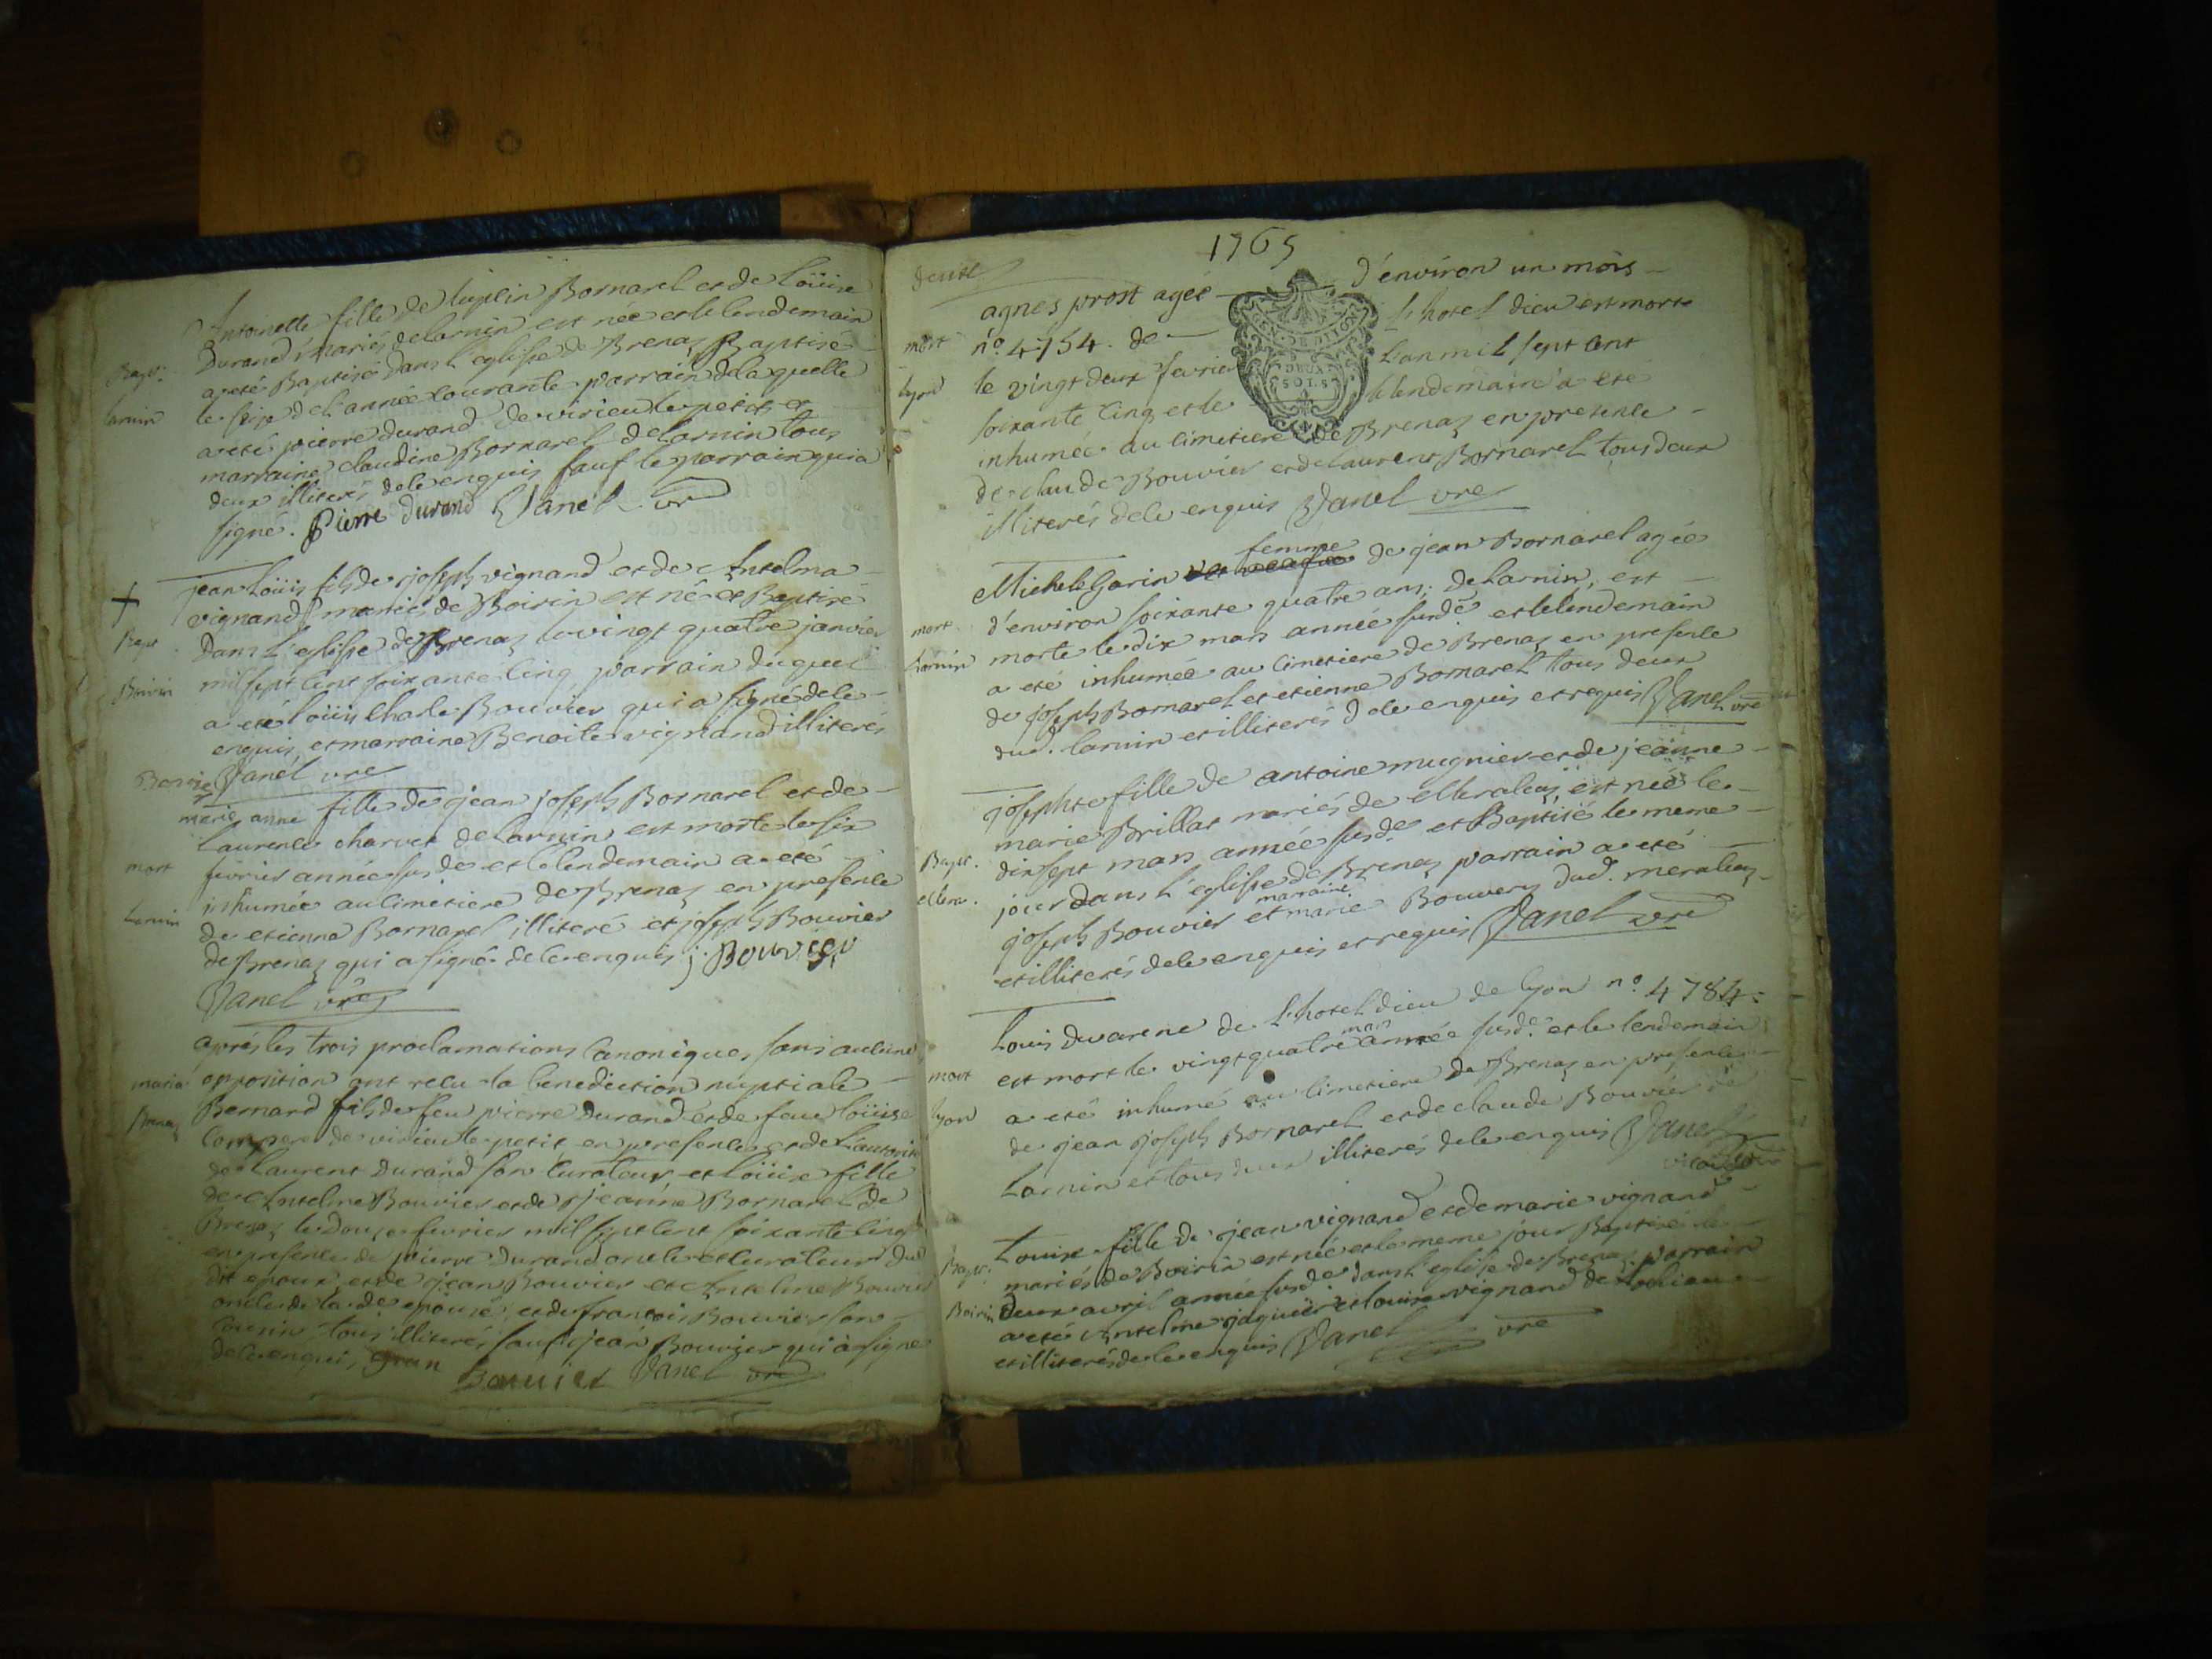 Antoinette fille de Bornarel et de Loüise
Durand mariés de Larnin est née et le lendemain
Bapt. a eté Baptisé dans l'eglise de Brenaz Baptisé
Larnin le seize de l'année courante parrain de laquelle
a eté pierre durand de virieu le petit et
marraine claudine Bornarel de Larnin tous
deux illiterés de le enquis sauf le parrain qui a
signé. Pierre durand Janel vre
+ jean Loüis fils de joseph vignand et de Antelma
vignand mariés de Boirin est né et Baptisé
Bapt. Dans l'eglise de Brenaz le vingt quatre janvier
Boirin mil sept cent soixante cinq parrain duquel
a eté loüis Charle Bouvier qui a signé de le
enquis, et marraine Benoite vignand illiterés
Janel vre
marie anne fille de jean joseph Bornarel et de
Laurence charvet de Larnin est morte le six
mort fevrier année susde et le lendemain a eté
inhumée au cimetiere de Brenaz en presence
Larnin de etienne Bornarel illiteré et joseph Bouvier
de Brenaz qui a signé de le enquis j. Bouvier
Janel vre
après les trois proclamations Canoniques sans aucune
maria. opposition ont recu la benediction nuptiale
Brenaz Bernard fils de feu pierre Durand et de feue loüise
Compere de virieu le petit en presence et de l'autorité
de Laurent Durand son Curateur, et Loüise fille
de Antelme Bouvier et de jeanne Bornarel de
Brenaz le Douze fevrier mil sept cent soixante cinq
en presence de pierre Durand oncle et curateur du
dit epoux, et de jean Bouvier et Antelme Bouvier
oncle de la de epouse, et de françois Bouvier son
cousin tous illiterés sauf jean Bouvier qui a signé
de le enquis, jean Bouvier Janel vre
1765
deuxe
agnes prost ageé d'environ un mois
mort n° 4754. de L'hotel dieu est morte
Lyon le vingt deux fevrier L'an mil sept cent
soixante Cinq et le lendemain a eté
GEN. DE DIJON
DEUX
SOLS
inhumée au Cimetiere de Brenaz en presence
de claude Bouvier et de Laurent Bornarel tous deux
illiterés de le enquis Janel vre
femme
Michele Garin de jean Bornarel agée
d'environ soixante quatre ans, de Larnin, est
mort morte le dix mars année susde et le lendemain
Larnin a eté inhumée au Cimetiere de Brenaz en presence
de joseph Bornarel et etienne Bornarel tous deux
dud. Larnin et illiterés de le enquis et requis Janel vre
josephte fille de antoine mugnier et de jeanne
marie Brillat mariés de Meraleaz est née le
Bapt. dix sept mars, année susde et Baptisé le meme
Mera. jour dans L'eglise de Brenaz parrain a eté
marraine
joseph Bouvier et marie Bouvery dud. meraleaz
et illiterés de le enquis et requis Janel vre
Louis duvarene de L'hotel dieu de Lyon n° 4784.
mars
mort est mort le vingt quatre année susde et le lendemain
Lyon a eté inhumé au Cimetiere de Brenaz en presence
de jean joseph Bornarel et de claude Bouvier de
Larnin et tous deux illiterés de le enquis Janel
vicaire
Louise fille de jean vignand et de marie vignand
Bapt. mariés de Boirin est née et le meme jour Baptisé le
Boirin deux avril année susde dans l'eglise de Brenaz parrain
a eté Antelme et louise vignand de
et illiterés de le enquis Janel vre